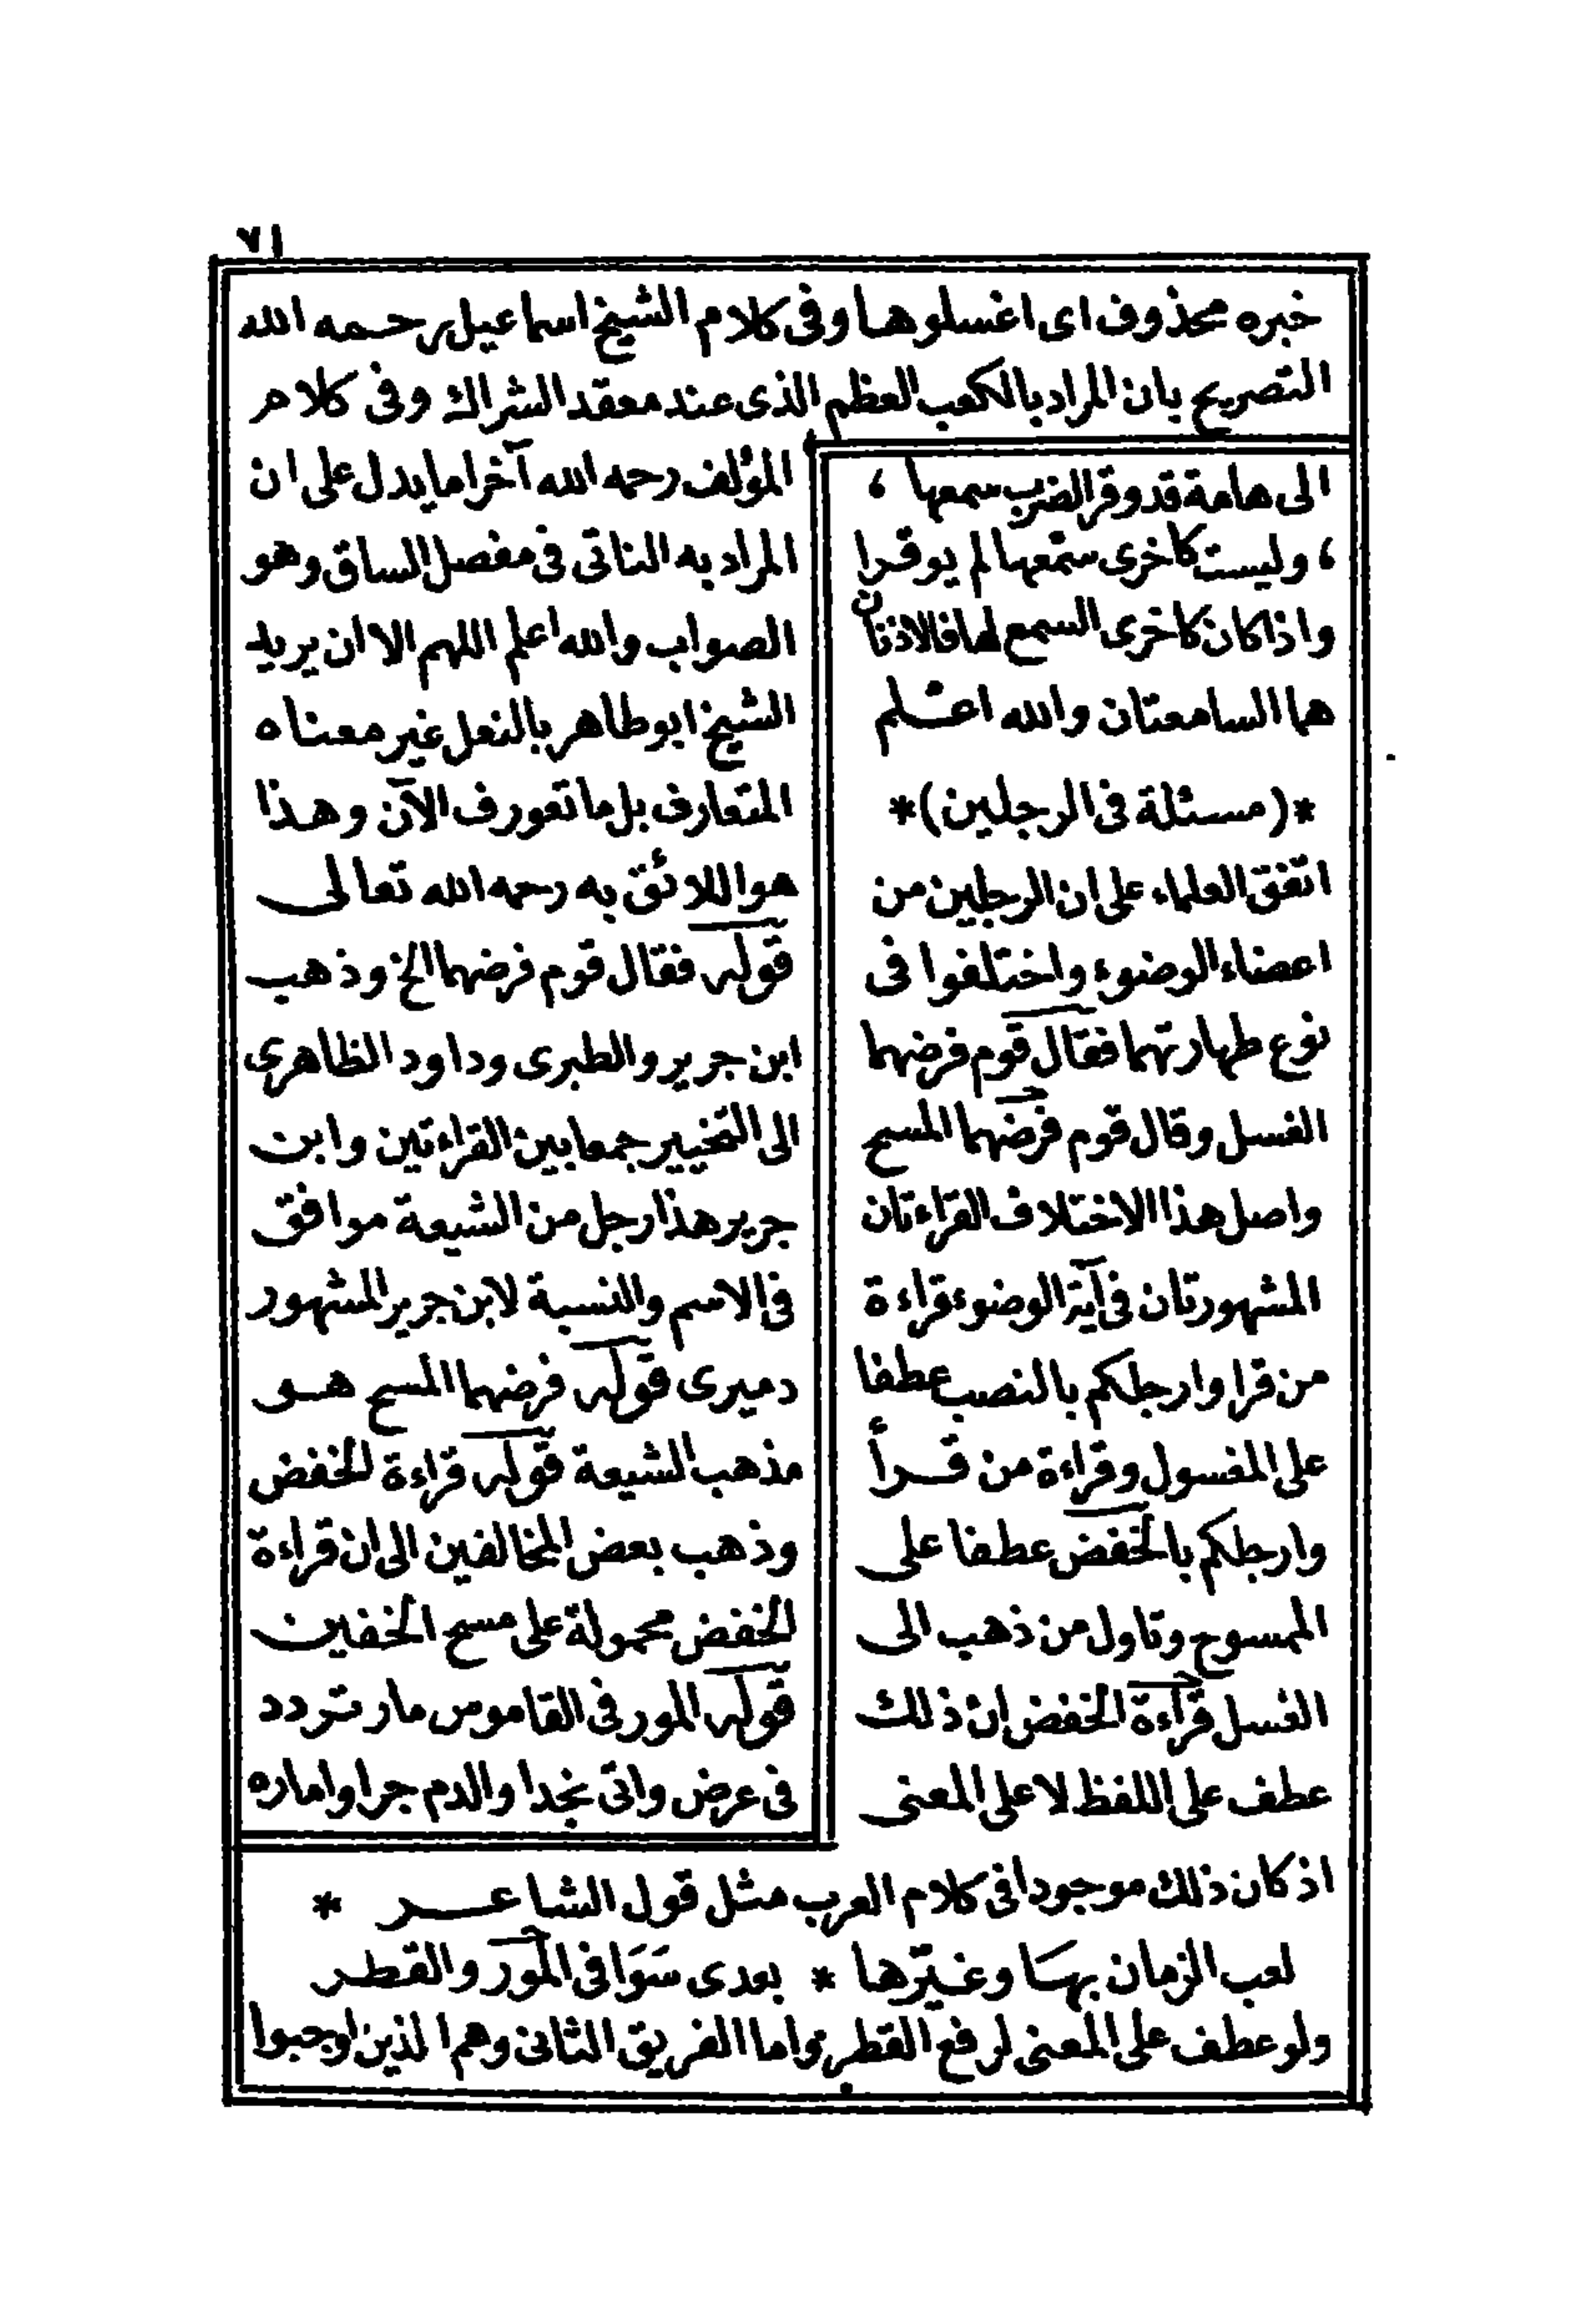 ٧١
خبره محذوف اى اغسلوها وفى كلام الشيخ اسماعيل رحمه الله
التصريح بان المراد بالكعب العظم الذى عند معقد الشراك وفى كلام
المؤلف رحمه الله آخرا ما يدل على ان
المراد به الناتى فى مفصل الساق وهو
الصواب والله اعلم اللهم الا ان يريد
الشيخ ابو طاهر بالنعل غير معناه
المتعارف بل ما تعورف الآن وهذا
هو اللائق به رحمه الله تعالى
قوله فقال قوم فرضهما الخ وذهب
ابن جرير والطبرى وداود الظاهري
الى التخيير جمعا بين القراءتين وابن
جرير هذا رجل من الشيعة موافق
فى الاسم والنسبة لابن جرير المشهور
دميرى قوله فرضهما المسح هو
مذهب الشيعة قوله قراءة الخفض
وذهب بعض المخالفين الى ان قراءة
الخفض محمولة على مسح الخفين
قوله المور فى القاموس مار تردد
فى عرض واتى نجدا والدم جرا واماره
الى هامة قد وقر الضرب سمعها ،
، وليست كاخرى سمعها لم يوقرا
واذا كان كاخرى السمع لها فالاذنان
هما السامعتان والله اعلم
*(مسئلة فى الرجلين)*
اتفق العلماء على ان الرجلين من
اعضاء الوضوء واختلفوا فى
نوع طهارتهما فقال قوم فرضهما
الغسل وقال قوم فرضهما المسح
واصل هذا الاختلاف القراءتان
المشهورتان فى آية الوضوء قراءة
من قرا وارجلكم بالنصب عطفا
على المغسول وقراءة من قرأ
وارجلكم بالخفض عطفا على
الممسوح وتاول من ذهب الى
الغسل قراءة الخفض ان ذلك
عطف على اللفظ لا على المعنى
اذ كان ذلك موجودا فى كلام العرب مثل قول الشاعر *
لعب الزمان بها وغيّرها * بعدى سَوَافى المور والقطر
ولو عطف على المعنى لرفع القطر واما الفريق الثانى وهم الذين اوجبوا